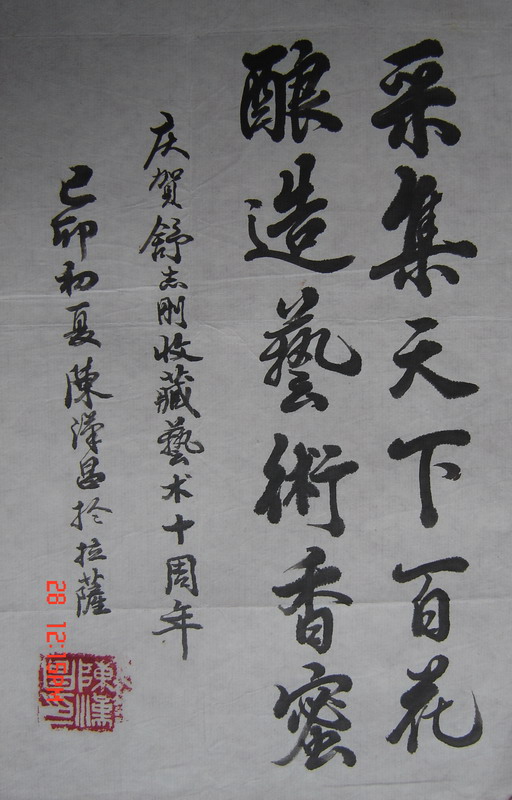 采集天下百花
酿造藝術香蜜
庆賀舒志刚收藏藝术十周年
己卯初夏陳漢昌於拉薩
陳漢
昌印
28 12:15PM